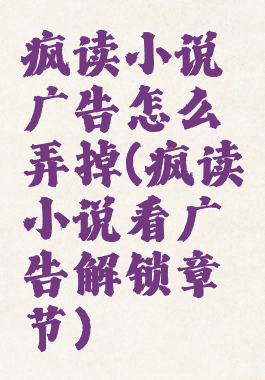 疯读小说
广告怎么
弄掉(疯读
小说看广
告解锁章
节)